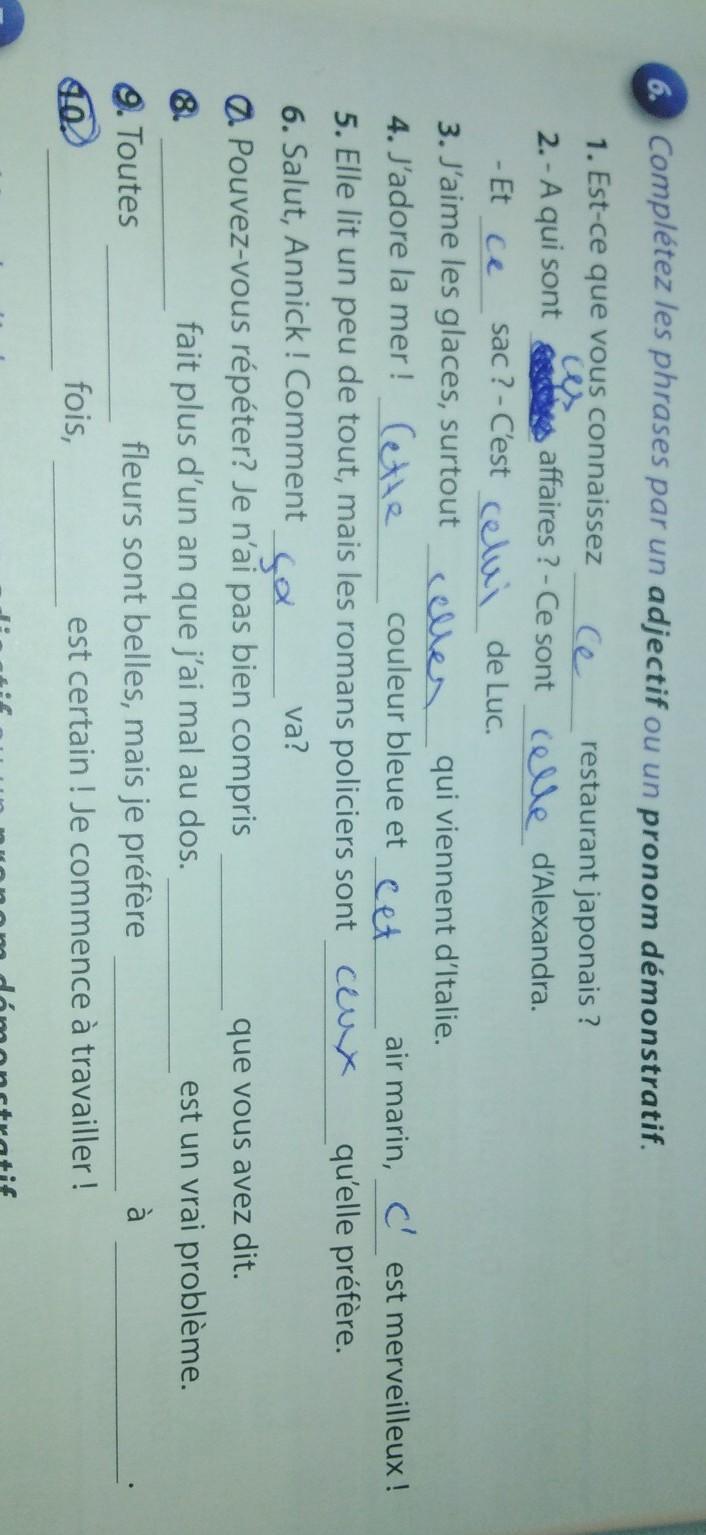 6. Complétez les phrases par un adjectif ou un pronom démonstratif.
1. Est-ce que vous connaissez ce restaurant japonais ?
2. - A qui sont ces affaires ? - Ce sont celle d'Alexandra.
- Et ce sac ? - C'est celui de Luc.
3. J'aime les glaces, surtout celles qui viennent d'Italie.
4. J'adore la mer ! Cette couleur bleue et cet air marin, c' est merveilleux !
5. Elle lit un peu de tout, mais les romans policiers sont ceux qu'elle préfère.
6. Salut, Annick ! Comment ça va?
7. Pouvez-vous répéter? Je n'ai pas bien compris ______ que vous avez dit.
8. ______ fait plus d'un an que j'ai mal au dos. ______ est un vrai problème.
9. Toutes ______ fleurs sont belles, mais je préfère ______ à ______.
10. ______ fois, ______ est certain ! Je commence à travailler !